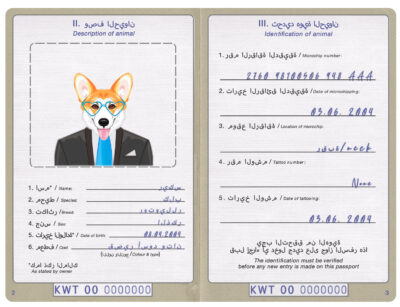 II. وصف الحيوان
Description of animal
1. اسم* / Name:
2. / Species:
كلب
3. / Breed:
روتويلر
4. جنس / Sex:
5. تاريخ الولادة* / Date of birth
08.04.2009
6. معطف / Coat
قصير أسود وتان
/ Colour & type)
As stated by owner
2
KWT 00 0000000
III. تحديد هوية الحيوان
Identification of animal
1. رقم الرقاقة الدقيقة / Microchip number:
AAA
2. تاريخ الرقائق الدقيقة / Date of microchipping:
03.06.2009
3. موقع الرقاقة / Location of microchip:
رقبة/neck
4. رقم الوشم / Tattoo number:
None
5. تاريخ الوشم / Date of tattooing:
03.06.2009
يجب التحقق من الهوية
قبل إجراء أي دخول جديد على جواز السفر هذا
The identification must be verified
before any new entry is made on this passport
KWT 00 0000000
3